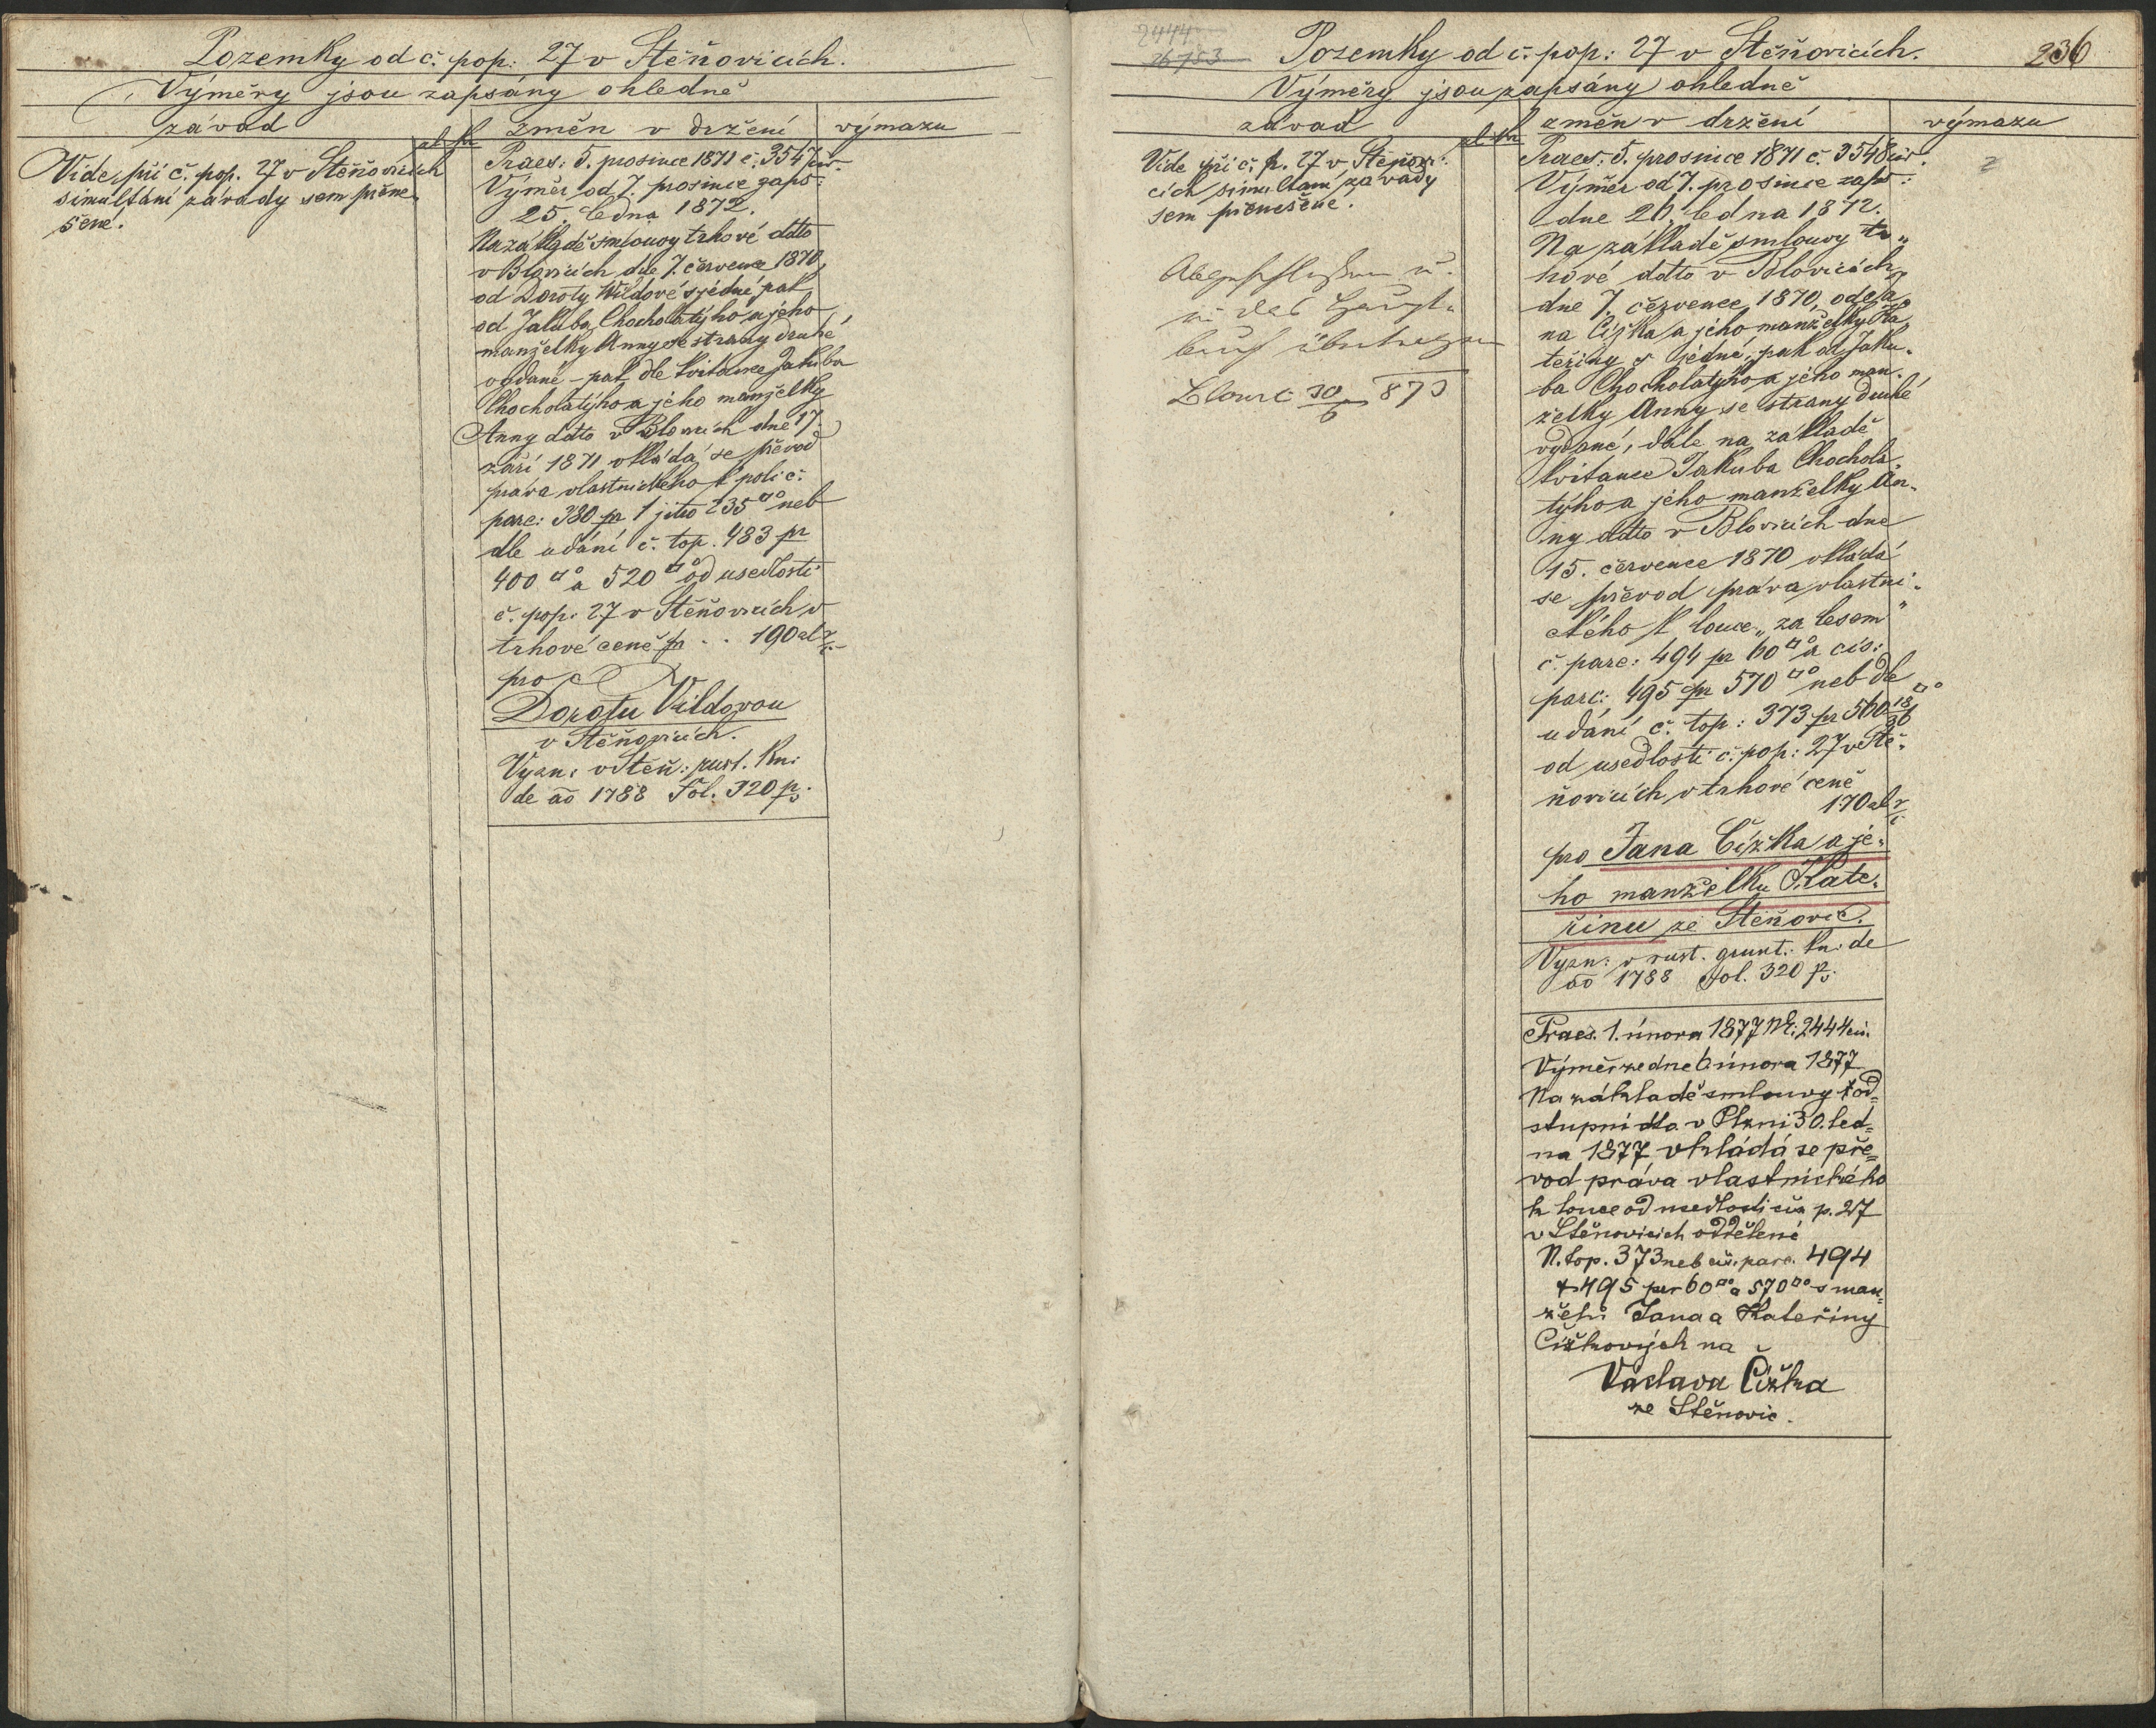 Pozemky od č. pop: 27 v Štěňovicích.
Výměry jsou zapsány ohledně
závad
zl kr
změn v držení
výmazu
Vide při č. pop. 27 v Štěňovicích
simultání závady sem přene-
šené.
Praes: 5. prosince 1871 č. 3547 civ.
Výměr od 7. prosince zaps:
25. ledna 1872.
Na základě smlouvy trhové ddto
v Blovicích dne 7. července 1870,
od Doroty Wildové s jedné pak
od Jakuba Chocholatýho a jeho
manželky Anny se strany druhé
vydané – pak dle kvitance Jakuba
Chocholatýho a jeho manželky
Anny ddto v Blovicích dne 17.
září 1871 vkládá se převod
práva vlastnického k poli č.
parc: 380 pr 1 jitro 235□° neb
dle udání č. top. 483 pr
400□° a 520□° od usedlosti
č. pop. 27 v Štěňovicích v
trhové ceně pr .. 190 zl r. č.
pro
Dorotu Vildovou
v Štěňovicích.
Vyzn: v Štěň: rust. kn:
de ao 1788 Fol. 320 p.
2444
26753
Pozemky od č. pop: 27 v Štěňovicích.
236
Výměry jsou zapsány ohledně
závad
zl kr
změn v držení
výmazu
Vide při č. p. 27 v Štěňovi-
cích simultaní závady
sem přenešené.
Abgeschlossen u.
in das Haupt-
buch übertragen
30/6 873
Praes: 5. prosince 1871 č. 3548 civ.
Výměr od 7. prosince zaps:
dne 26. ledna 1872.
Na základě smlouvy tr-
hové ddto v Blovicích
dne 7. července 1870, od Ja-
na Čížka a jeho manželky Ka-
teřiny s jedné, pak od Jaku-
ba Chocholatýho a jeho man-
želky Anny se strany druhé
vydané, dále na základě
kvitance Jakuba Chochola-
týho a jeho manželky An-
ny ddto v Blovicích dne
15. července 1870 vkládá
se převod práva vlastni-
ckého k louce „za lesem"
č. parc: 494 pr 60□° a čís:
parc: 495 pr 570□° neb dle
udání č. top: 373 pr 560 18/36□°
od usedlosti č. pop: 27 v Ště-
ňovicích v trhové ceně
170 zl r. č.
pro Jana Čížka a je-
ho manželku Kate-
řinu ze Štěňovic.
Vyzn: v rust. grunt: kn: de
ao 1788 fol. 320 p.
Praes. 1. února 1877 Nr. 2444 civ.
Výměr ze dne 6 února 1877
Na základě smlouvy od-
stupní dto. v Plzni 30. led-
na 1877 vkládá se pře-
vod práva vlastnického
k louce od usedlosti čís p. 27
v Štěnovicích oddělené
N. top. 373 neb čís. parc. 494
& 495 per 60□° a 570□° s man-
želů Jana a Kateřiny
Čížkových na
Václava Čížka
ze Štěnovic.